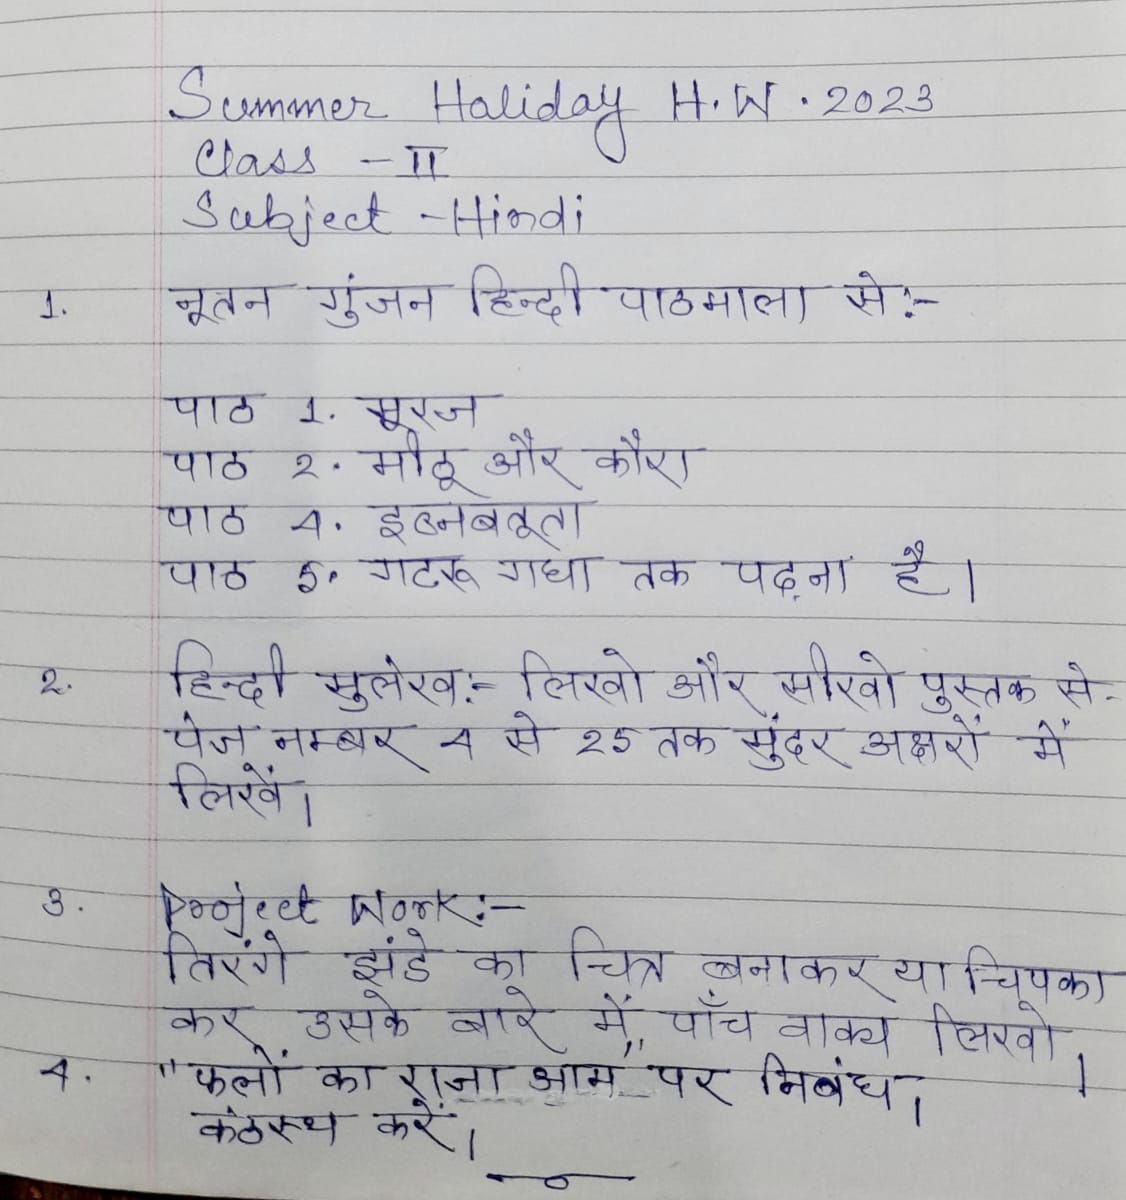 Summer Haliday H.W. 2023
Class - II
Subject - Hindi
1. नूतन गुंजन हिन्दी पाठमाला से:-
पाठ 1. सूरज
पाठ 2. मीठू और कौरा
पाठ 4. इब्नबतूता
पाठ 5. गटरू गधा तक पढ़ना है।
2. हिन्दी सुलेख:- लिखो और सीखो पुस्तक से-
पेज नम्बर 4 से 25 तक सुंदर अक्षरों में
लिखें।
3. Project Work:-
तिरंगे झंडे का चित्र बनाकर या चिपका
कर उसके बारे में पाँच वाक्य लिखो।
4. "फलों का राजा आम" पर निबंध।
कंठस्थ करें।